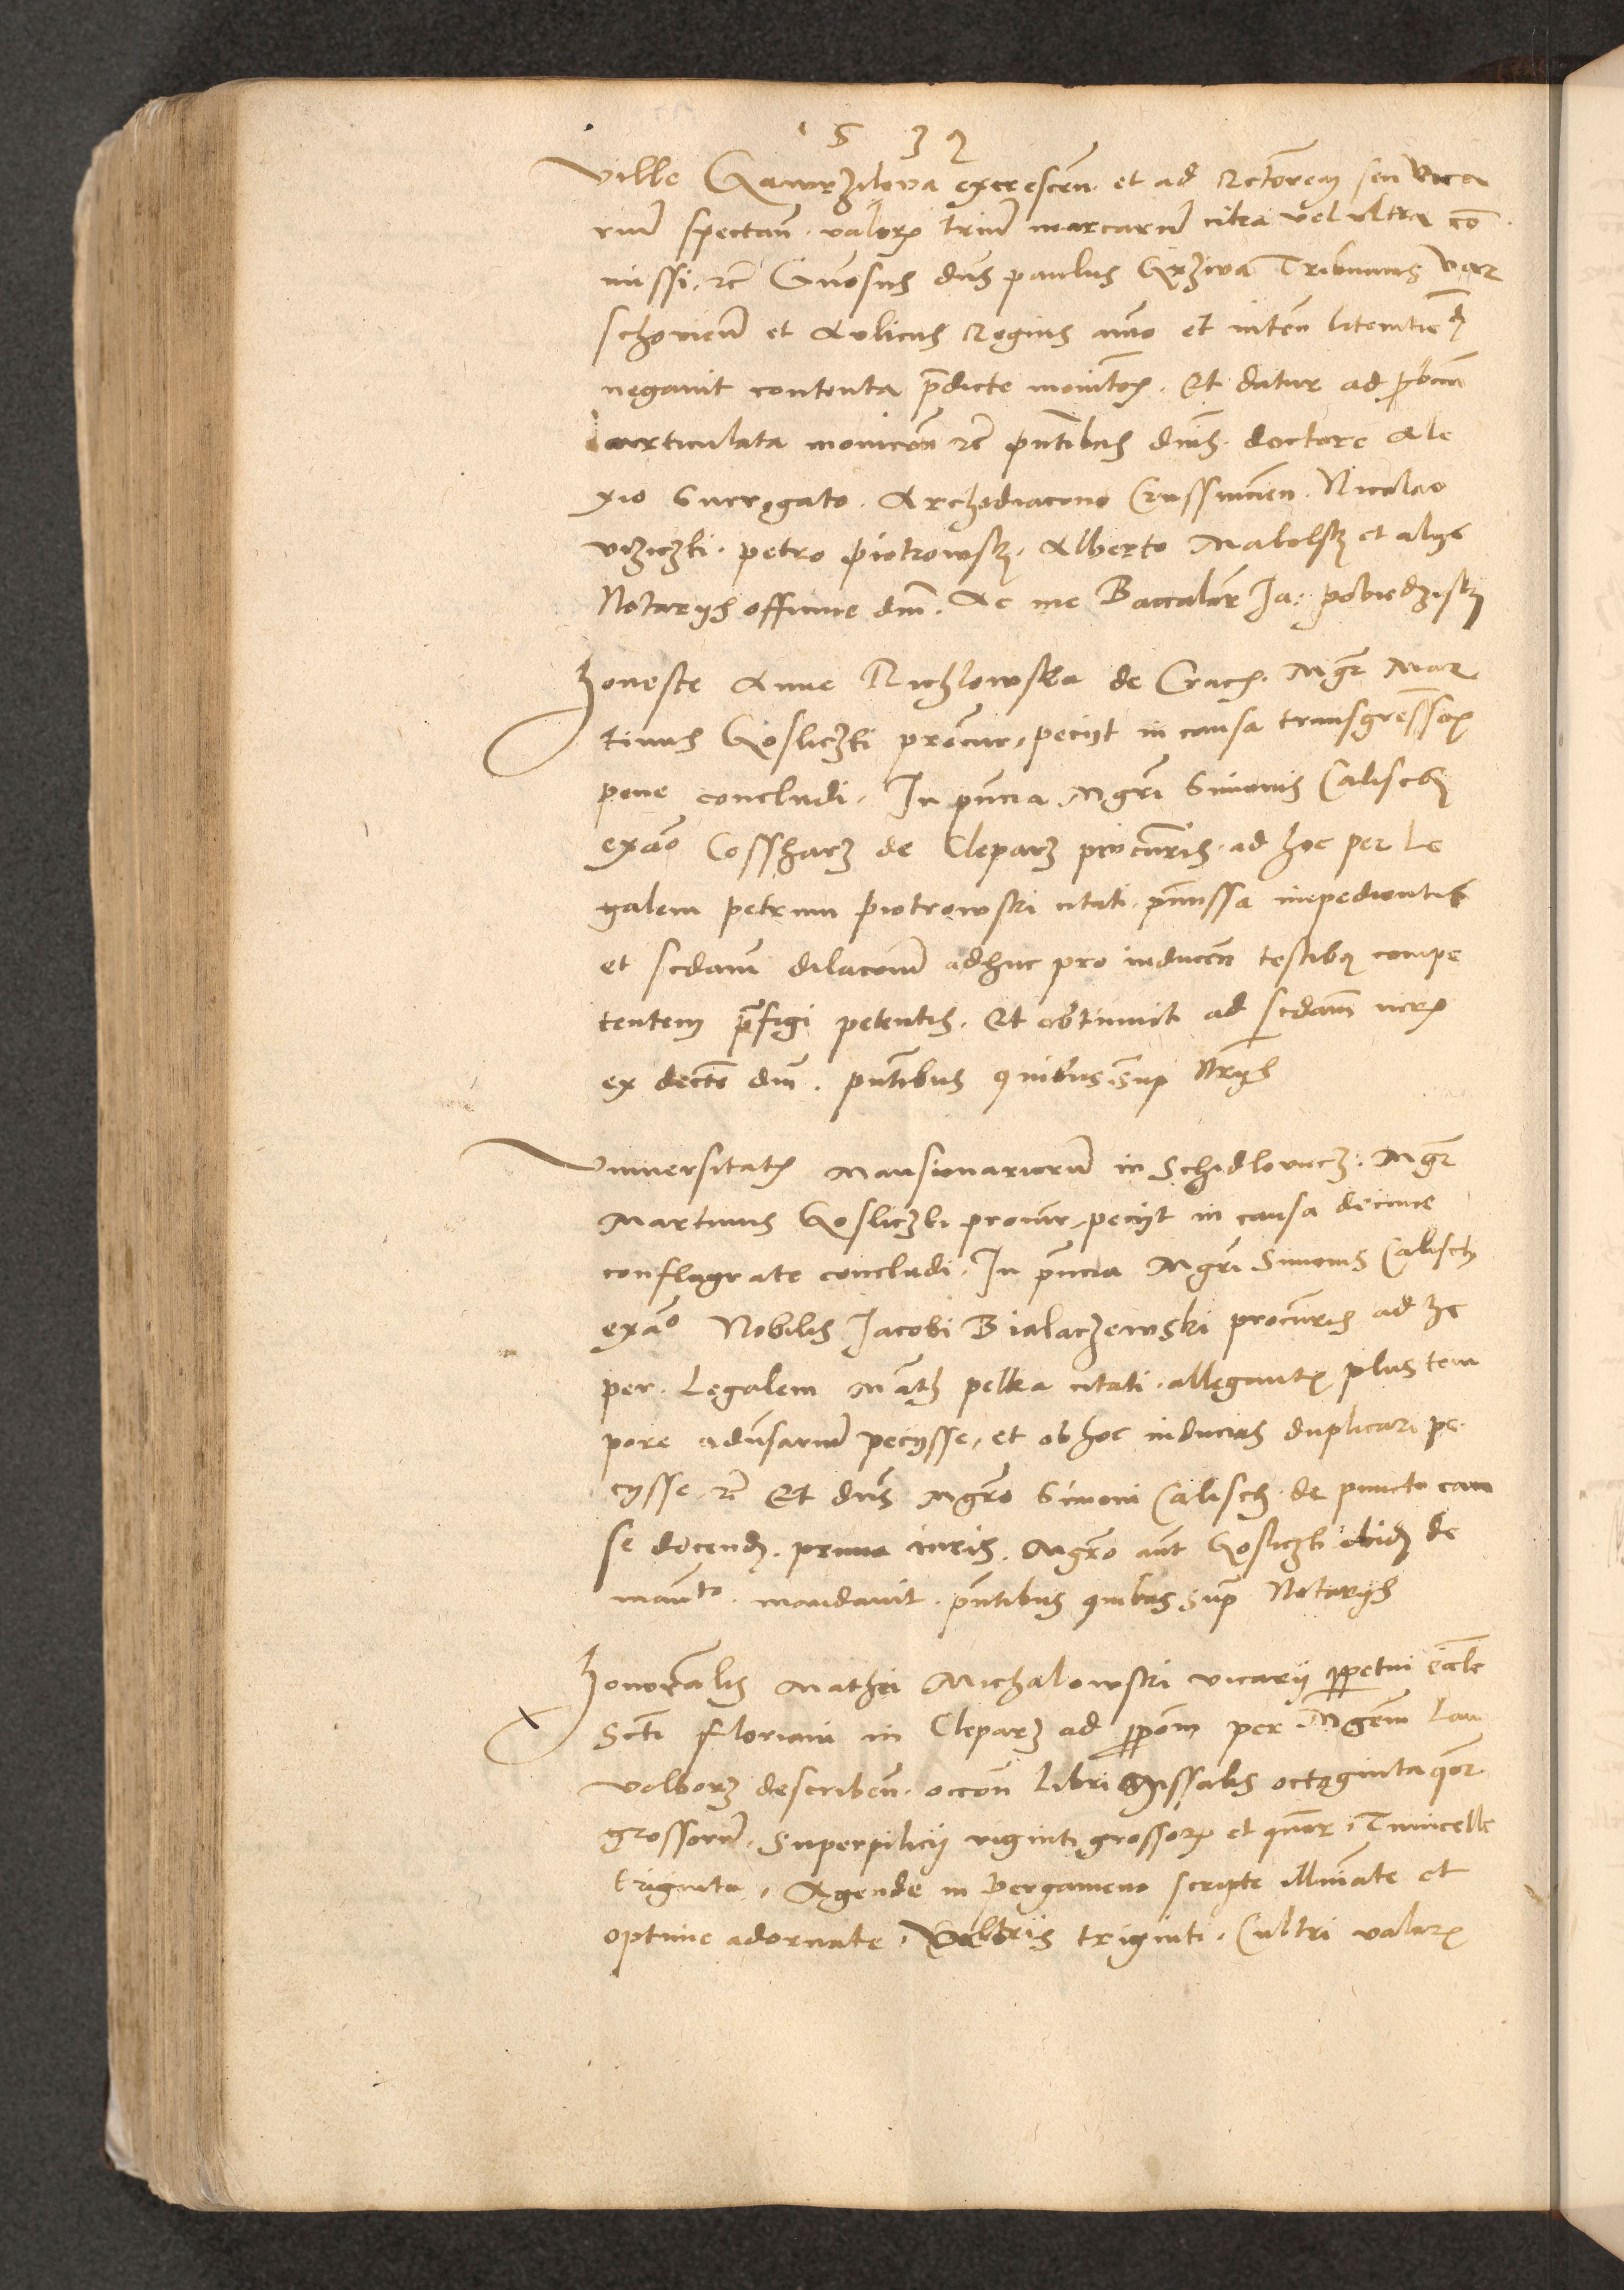 1 5 3 2
Ville Gawrzilova excrescen. et ad Rctorem seu vica
riu spectan. valoris triu marcaru citra vel ultra co
missi. rc Gnosus dns paulus Grziwa Tribunus var
schovien et Aulicus Regius animo et inten
negavit contenta predicte monitois. Et datur ad
articulata monicoem rc pntibus dnis. doctore Ale
xio Surrogato. Archidiacono Nicolao
petro piotrowski. Alberto et alys
Notarys officine dni. Ac me Baccalar Ja: pobiedzisky
Honeste Anne Richlowska de Crac. Mgr Mar
tinus Gosliczki procur. pecyt in causa transgressois
pene concludi. In pncia Mgri Simonis Calisch
exaio Cossharz de Cleparz procuris. ad hoc per le
galem petrum piotrowski citati. pmissa inpedientis
et scdam dilacoem adhuc pro inducen testibus compe
tentem prefigi petentis. Et obtinuit ad scdam
ex decto dni. pntibus quibus sup Nrys
Universitatis Mansionarioru in Schidloviecz. Mgr
Martinus Gosliczki procur. pecyt in causa decime
conflagrate concludi. In pncia Mgri Simonis Calisch
exaio Nobilis Jacobi Bialaczewski procuris ad hc
per Legalem Math pelka citati. allegantis plus tem
pore adusariu pecysse, et ob hoc inducias duplicari pe
cysse rc Et dns Mgro Simoni Calisch de puncto cau
se docend. primo iuris. Mgro aut Gosliczki de
manto. mandavit. pntibus quibus sup Notarys
Honorabilis Mathei Michalowski vicary perpetui ecclie
Scti Floriani in Cleparz ad per Mgrm Lau
volborz describen. occoen libri Missalis octoginta quor
grossoru. Superpilicy viginti grossoru et quor. Tunicelle
triginta. Agende in pergameno scripte illuminate et
optime adornate. triginti. Cultri valoris